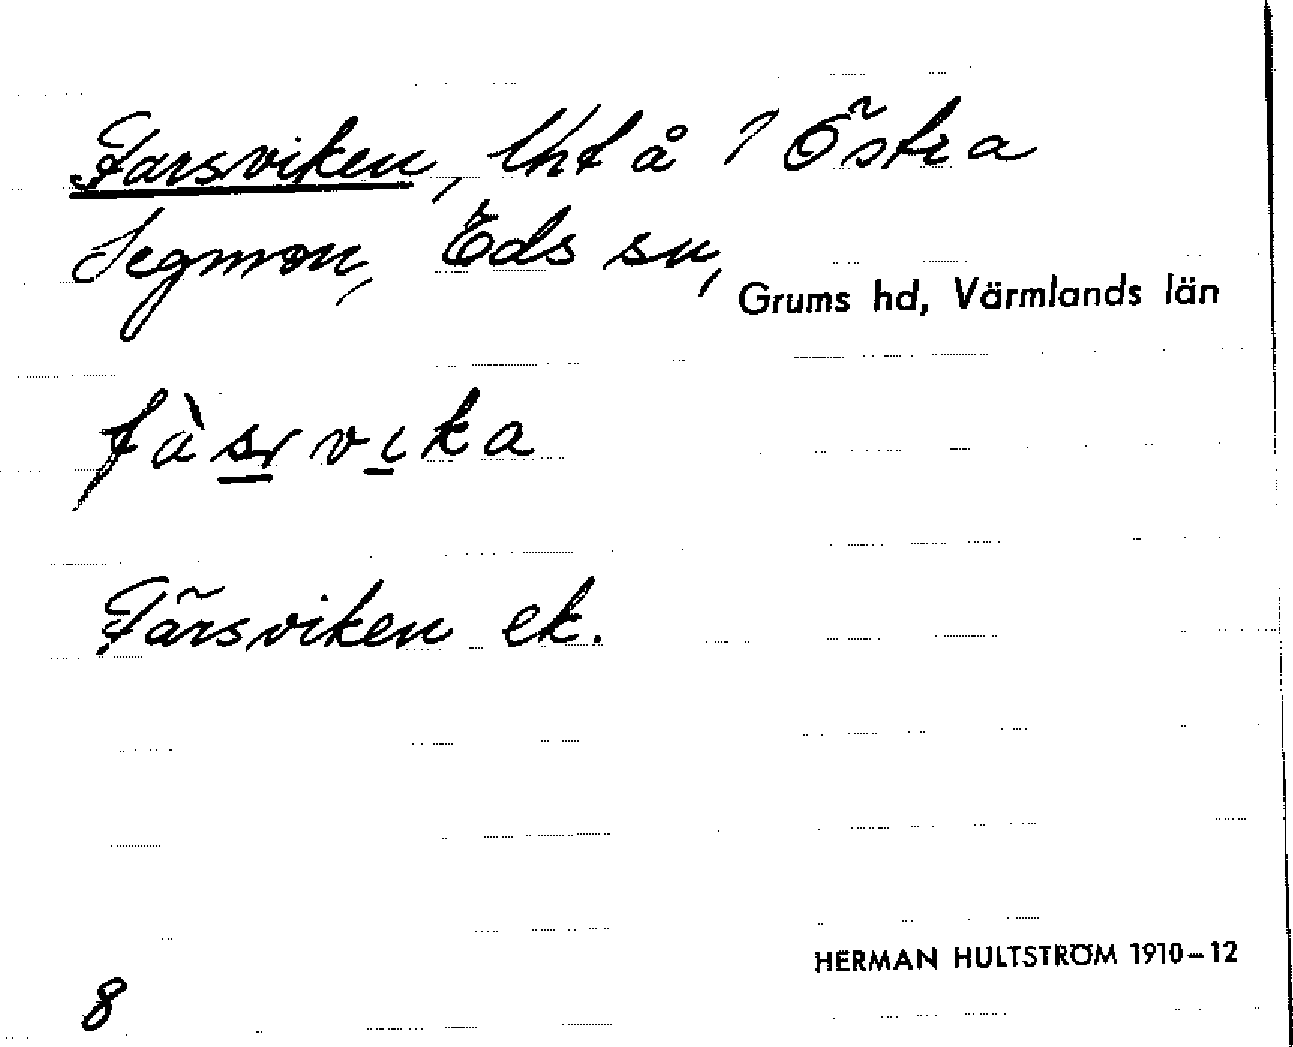 Farsviken, lht å 1 Östra
Segmon, Eds sn,
Grums hd, Värmlands län
fàsrvika
Färsviken ek.
HERMAN HULTSTRÖM 1910–12
8